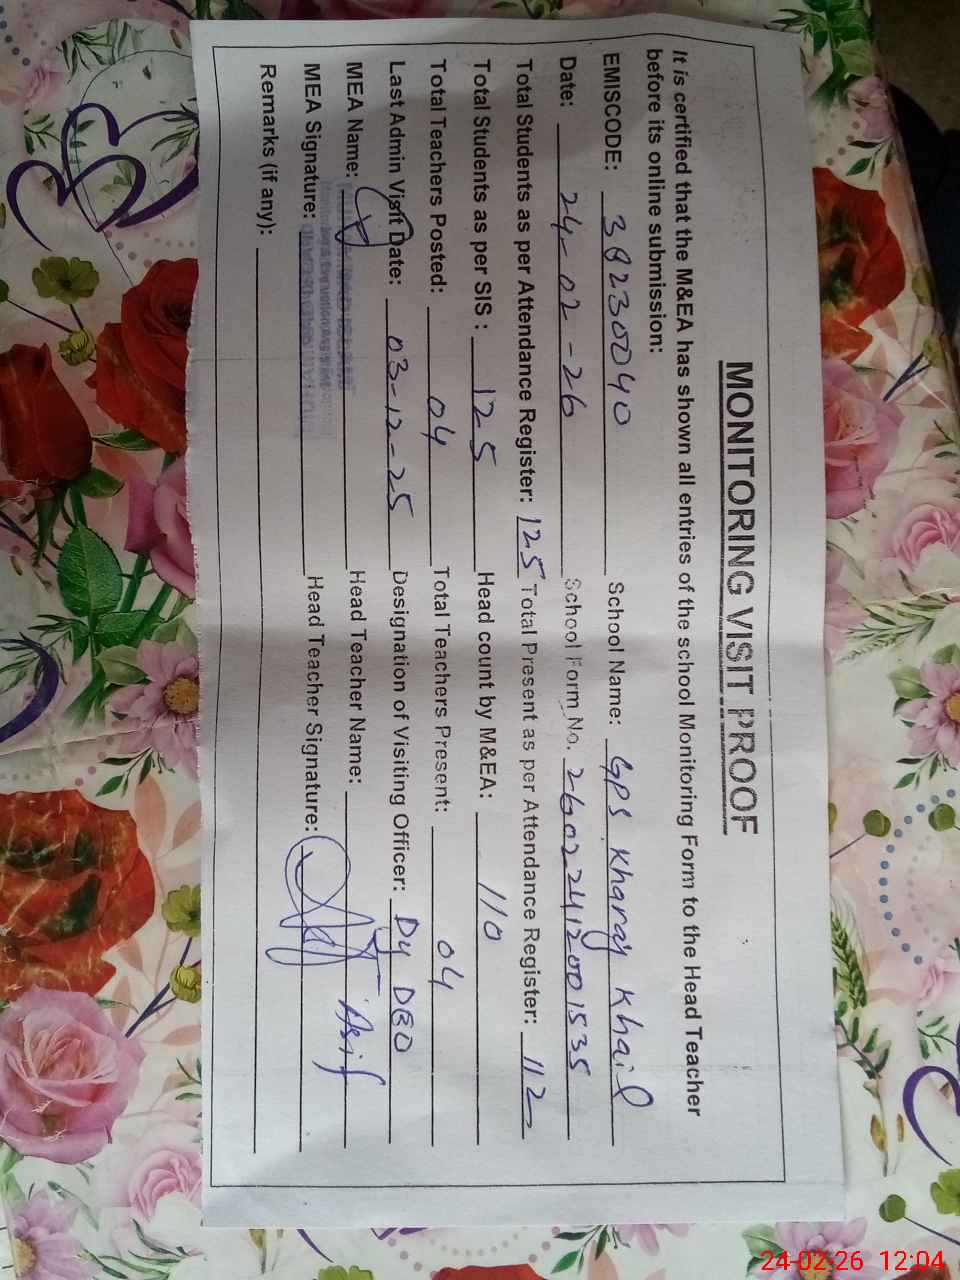 MONITORING VISIT PROOF
It is certified that the M&EA has shown all entries of the school Monitoring Form to the Head Teacher
before its online submission:
EMISCODE: 38230040 School Name: GPS Kharay Khail
Date: 24-02-26 School Form No. 26022412001535
Total Students as per Attendance Register: 125 Total Present as per Attendance Register: 112
Total Students as per SIS : 125 Head count by M&EA: 110
Total Teachers Posted: 04 Total Teachers Present: 04
Last Admin Visit Date: 03-12-25 Designation of Visiting Officer: Dy DEO
MEA Name: Head Teacher Name: Asif
MEA Signature: Head Teacher Signature:
Remarks (if any):
24-02-26 12:04